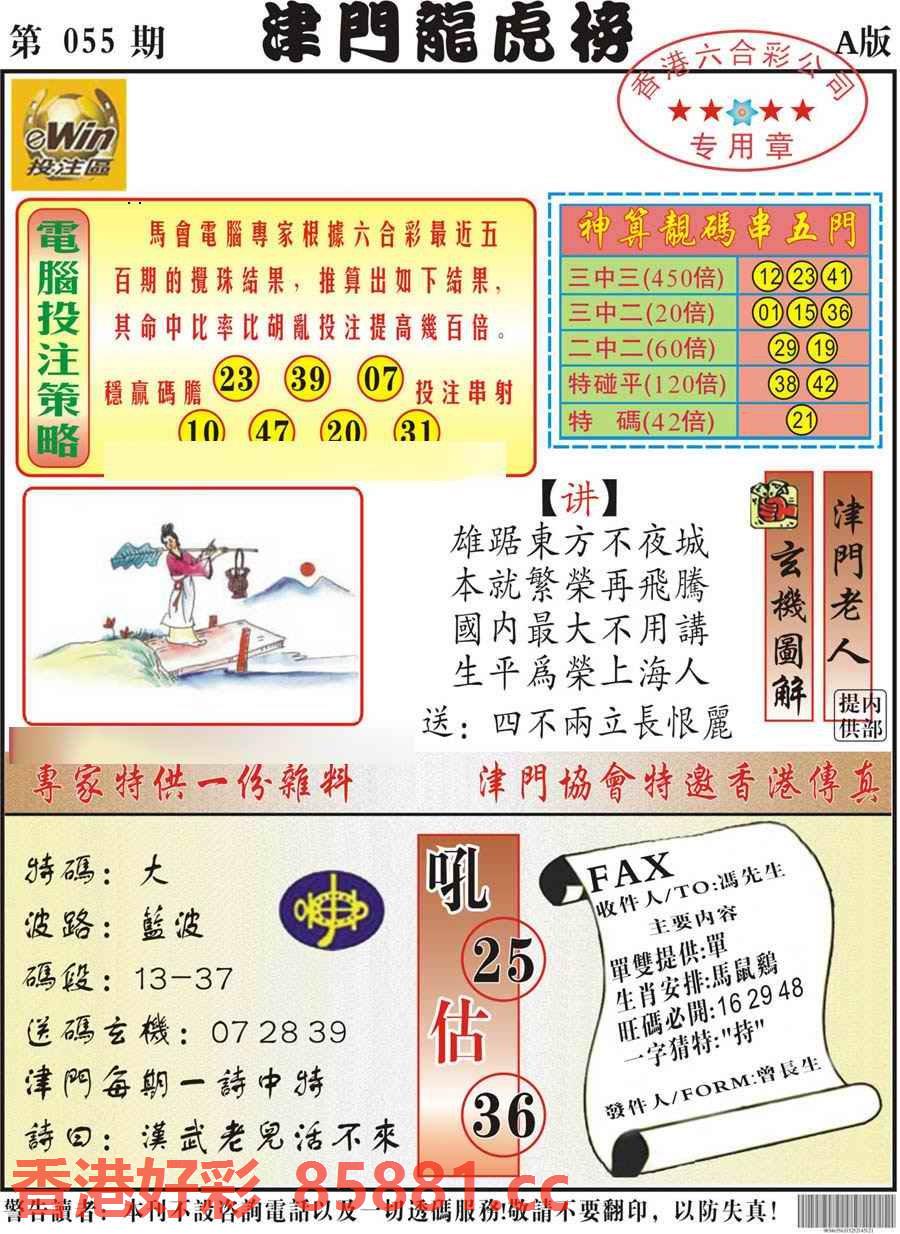 第 055 期
津門龍虎榜
A版
香港六合彩公司
专用章
eWin
投注區
電腦投注策略
馬會電腦專家根據六合彩最近五
百期的攪珠結果，推算出如下結果，
其命中比率比胡亂投注提高幾百倍。
穩贏碼膽 23 39 07 投注串射
10 47 20 31
神算靚碼串五門
三中三(450倍) 12 23 41
三中二(20倍) 01 15 36
二中二(60倍) 29 19
特碰平(120倍) 38 42
特 碼(42倍) 21
【讲】
雄踞東方不夜城
本就繁榮再飛騰
國内最大不用講
生平爲榮上海人
送：四不兩立長恨麗
玄機圖解
津門老人
内部提供
專家特供一份雜料
津門協會特邀香港傳真
特碼：大
波路：藍波
碼段：13-37
送碼玄機：07 28 39
津門每期一詩中特
詩曰：漢武老兒活不來
吼
25
估
36
FAX
收件人/TO:馮先生
主要内容
單雙提供:單
生肖安排:馬鼠鷄
旺碼必開:16 29 48
一字猜特:"持"
發件人/FORM:曾長生
香港好彩 85881.cc
警告讀者：本刊不設咨詢電話以及一切透碼服務!敬請不要翻印，以防失真!